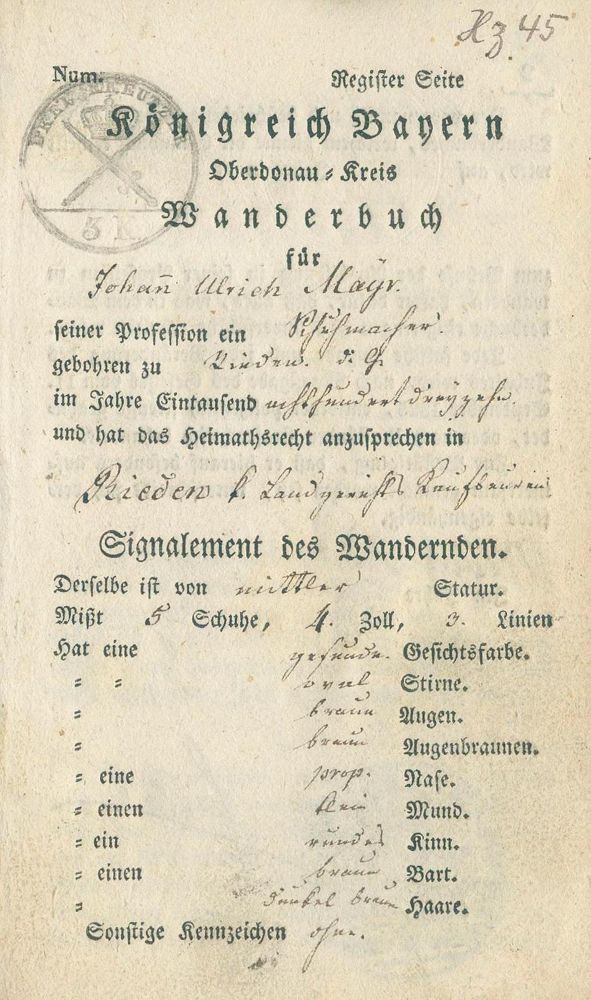 Hz. 45
Num. Register Seite
DREI KREUTZER
3 K
Königreich Bayern
Oberdonau-Kreis
Wanderbuch
für
Johañ Ulrich Mayr.
seiner Profession ein Schuhmacher.
gebohren zu Rieden. d. G.
im Jahre Eintausend achthundert dreyzehn.
und hat das Heimathsrecht anzusprechen in
Rieden k. Landgerichts Kaufbeuren
Signalement des Wandernden.
Derselbe ist von mittler Statur.
Mißt 5 Schuhe, 4. Zoll, 3. Linien
Hat eine gesunde. Gesichtsfarbe.
= = oval Stirne.
= braun Augen.
= braun Augenbraunen.
= eine prop. Nase.
= einen klein Mund.
= ein rundes Kinn.
= einen braun Bart.
= dunkel braun Haare.
Sonstige Kennzeichen ohne.